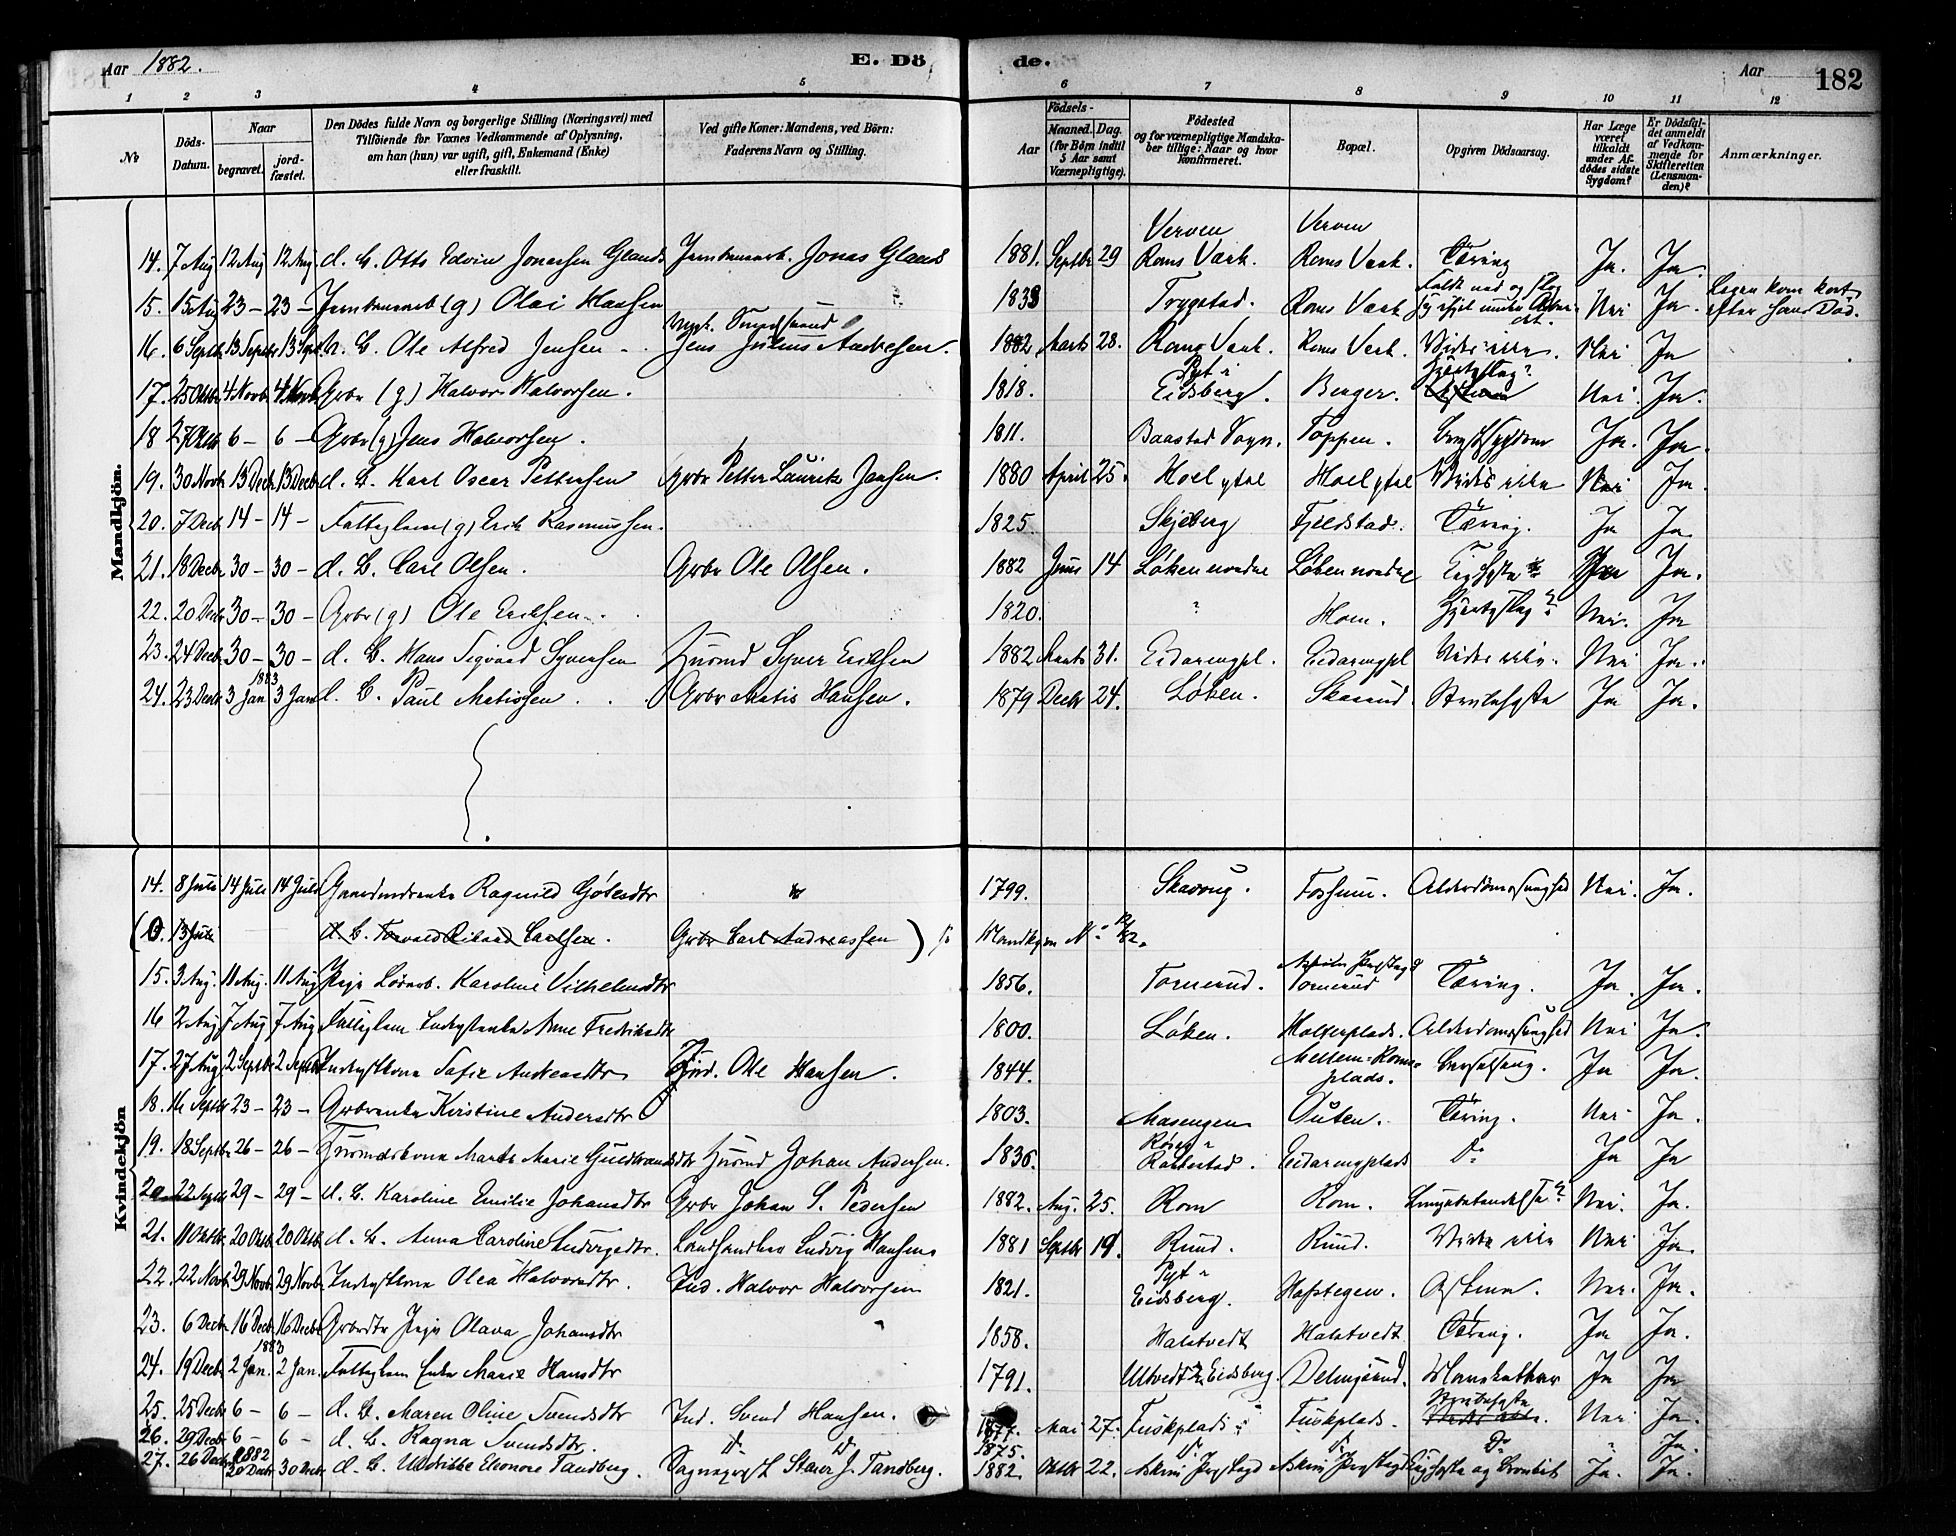 Aar 1882.
E. Dö
de.
Aar
182
1 2 3 4 5 6 7 8 9 10 11 12
No
Döds-Datum.
Naar
begravet.
jord-fæstet.
Den Dödes fulde Navn og borgerlige Stilling (Næringsvei) med
Tilföiende for Voxnes Vedkommende af Oplysning,
om han (hun) var ugift, gift, Enkemand (Enke)
eller fraskilt.
Ved gifte Koner: Mandens, ved Börn:
Faderens Navn og Stilling.
Födsels-
Aar
Maaned. Dag.
(for Börn indtil
5 Aar samt
Værnepligtige).
Födested
og for værnepligtige Mandska-
ber tillige: Naar og hvor
konfirmeret.
Bopæl.
Opgiven Dödsaarsag.
Har Læge
været
tilkaldt
under Af-
dödes sidste
Sygdom?
Er Dödsfal-
det anmeldt
af Vedkom-
mende for
Skifteretten
(Lensman-
den)?
Anmærkninger.
Mandkjön.
Verven Verven
14. 7 Aug 12 Aug 12 Aug. d. B. Otto Edvin Jonassen Glands Jonas Glands 1881. Septbr 29 Roms Værk. Roms Værk. Tæring Ja. Ja.
15. 15 Aug 23 – 23 – (g) Olai Hansen 1838 Trygstad. Roms Værk Nei Ja Lægen kom kort
efter hans Död.
16. 6 Septbr 13 Septbr 13 Sept. d. B. Ole Alfred Jensen Jens Julius Andresen. 1882 Marts 28. Roms Værk. Roms Værk. Vides ikke. Nei Ja
17. 25 Oktbr 4 Novb 4 Novb Grbr (g) Halvor Halvorsen. 1818. Eidsberg. Berger. Hjerteslag? Nei Ja.
18 27 Oktb. 6 – 6 – Grbr (g) Jens Halvorsen. 1811. Baastad Sogn. Toppen. Brystsygdom Ja. Ja.
19. 30 Novb 13 Decb 13 Decb d. B. Karl Oscar Pettersen Grbr Petter Lauritz Jensen. 1880 April 25. Hoel ytre Hoel ytre Vides ikke Nei Ja.
20. 7 Decb 14 – 14 – Fattiglem (g) Erik Rasmussen. 1825. Skjeberg Fjeldstad. Tæring. Ja Ja.
21. 18 Decbr 30 – 30 – d. B. Carl Olsen. Grbr Ole Olsen. 1882 Juni 14 Løken nordre Løken nordre Ja Ja.
22. 20 Decb 30 – 30 – Grbr (g) Ole Eriksen. 1820. " Horn. Hjerteslag? Nei. Ja
23. 24 Decb 30 – 30 – d. B. Hans Sigvard Syversen Husmd Syver Eriksen 1882 Marts 31. Eidarengpl. Eidarengpl Vides ikke. Nei Ja.
1883
24. 23 Decb 3 Jan 3 Jan d. B. Paul Matissen. Grbr Matis Hansen. 1879 Decbr 24. Løken. Skarud. Strubehoste Ja Ja.
Kvindekjön
14. 8 Juli 14 Juli 14 Juli Gaardmdenke Ragnild Gjöbesdtr 1799. Skaaug. Fossum. Alderdomssvaghed Nei. Ja.
(0. 13 Juli d. B. Torvald Rikard Carlsen. Grbr Carl Andreassen) Mandkjøn No 12/82.
15. 3 Aug. 11 Aug. 11 Aug Pige Karoline Vilhelmsdtr 1856. Tornerud. Tornerud Tæring. Ja. Ja.
16 2 Aug 7 Aug 7 Aug Fattiglem Anne Fredriksdtr 1800. Løken. Holterplads. Alderdomssvaghed Nei Ja.
17. 27 Aug 2 Septbr 2 Septbr Inderstkone Sofie Andreasdtr Ind. Ole Hansen. 1844. Mellem-Roms-
plads. Barselseng. Ja Ja.
18. 16 Septbr 23 – 23 – Grbrenke Kristine Andersdtr 1803. Masengen Tæring. Nei. Ja.
19. 18 Septbr 26 – 26 – Husmdskone Marte Marie Guldbrandsdtr Husmd Johan Andersen. 1836. Eidarengplads Do Ja Ja
20 22 Septb 29 – 29 – d. B. Karoline Emilie Johansdtr Grbr Johan S. Pedersen 1882. Aug. 25. Rom Rom. Lungebetændelse? Nei. Ja.
21. 11 Oktbr 20 Oktb 20 Oktb d. B. Anna Caroline Ludvigsdtr. Landhandler Ludvig Hansen 1881 Septbr 19. Ruud. Ruud. Vides ikke Nei Ja.
22. 22 Novb 29 Novb 29 Novb Inderstkone Olea Halvorsdtr. Ind. Halvor Halvorsen 1821. Eidsberg. Hofstegen. Asthma. Nei. Ja.
23. 6 Decbr 16 Decb 16 Decb Grbrdtr Pige Olava Johansdtr 1858. Halstvedt Halstvedt Tæring. Ja Ja.
1883
24. 19 Decbr 2 Jan. 2 Jan. Fattiglem Enke Marie Hansdtr 1791. Ultvedt i Eidsberg. Delingsrud. Mavekatharr Ja Ja
25. 25 Decbr 6 – 6 – d. B. Maren Oline Svendsdtr Ind. Svend Hansen. 1877. Mai 27. Fuskplads Fuskplads. Strubehoste Nei Ja.
26. 29 Decbr 6 – 6 – d. B. Ragna Svendsdtr. Do Do 1875. Do Do Do " Ja.
1882
27. 26 Decbr 30 Decbr 30 Decbr d. B. Uldrikke Elenore Tandberg. Sogneprest Staer J. Tandberg. 1882. Oktbr 22. Askim Prestegd Askim Prestegd Kighoste og Bronkit Ja. Ja.